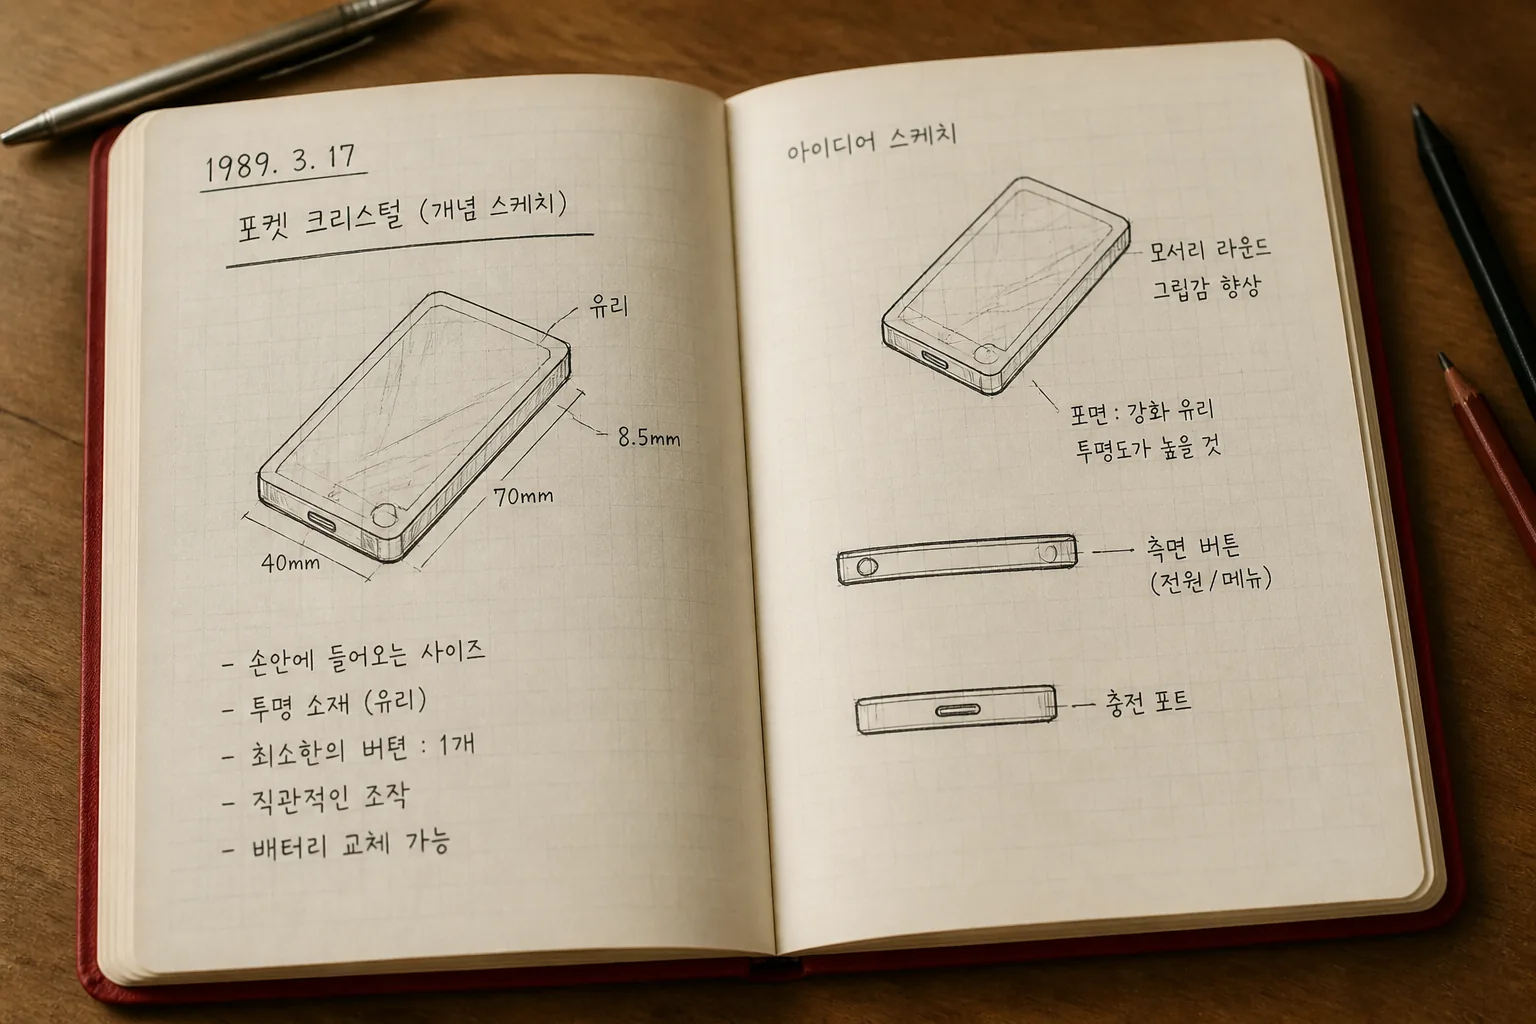 1989. 3. 17
포켓 크리스털 (개념 스케치)
유리
8.5mm
70mm
40mm
- 손안에 들어오는 사이즈
- 투명 소재 (유리)
- 최소한의 버튼 : 1개
- 직관적인 조작
- 배터리 교체 가능
아이디어 스케치
모서리 라운드
그립감 향상
포면 : 강화 유리
투명도가 높을 것
측면 버튼
(전원 / 메뉴)
충전 포트